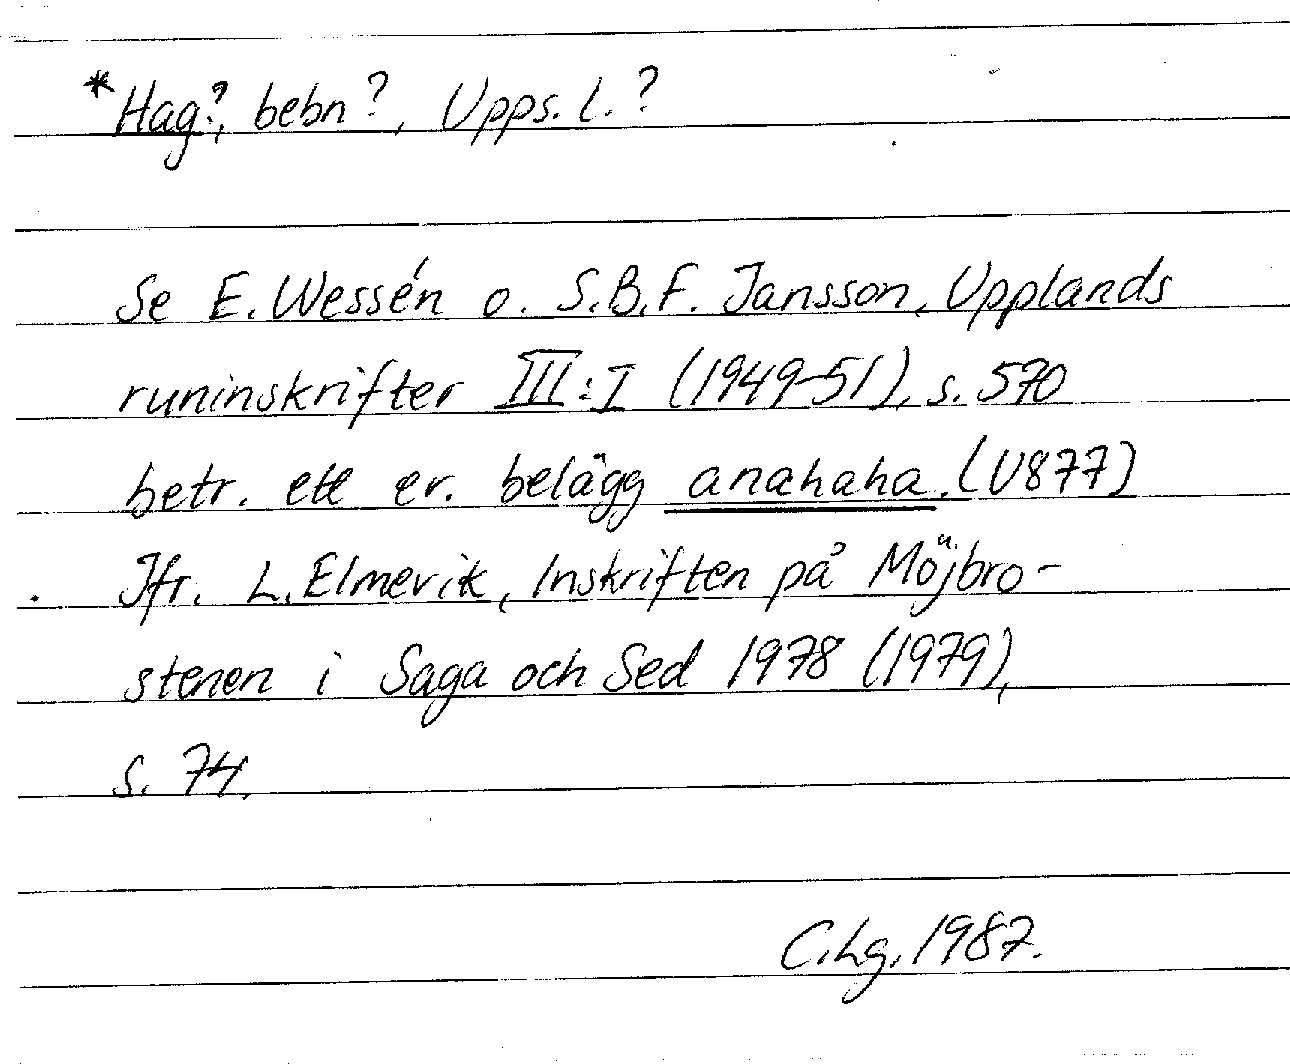 *Hag?, bebn?, Upps. l.?
Se E. Wessén o. S.B.F. Jansson, Upplands
runinskrifter III:I (1949-51), s. 570
betr. ett ev. belägg anahaha. (U877)
Jfr. L. Elmevik, Inskriften på Möjbro-
stenen i Saga och Sed 1978 (1979),
s. 74.
C.Lg. 1987.